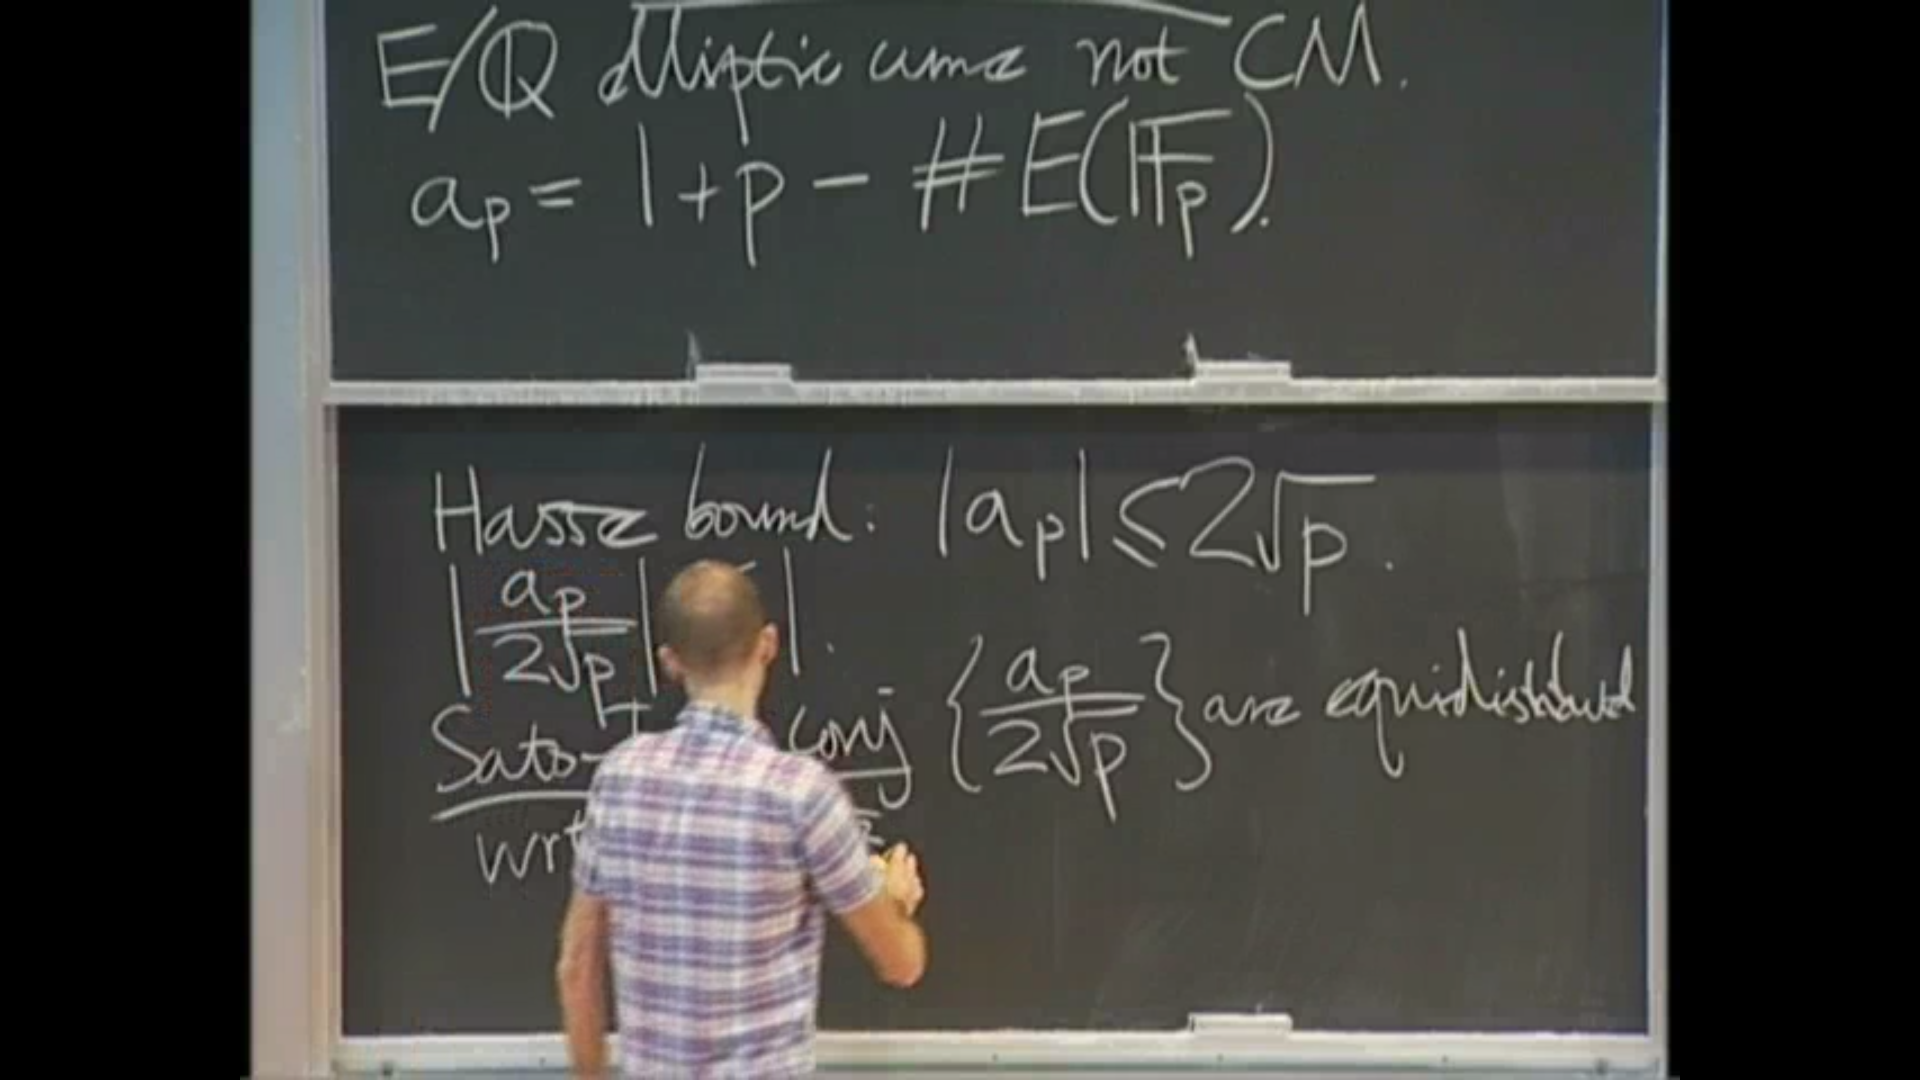 E/ℚ elliptic curve not CM.
a_p = 1+p - #E(𝔽_p).
Hasse bound: |a_p| ≤ 2√p.
|a_p/2√p| 1.
Sato- conj {a_p/2√p} are equidistributed
wrt